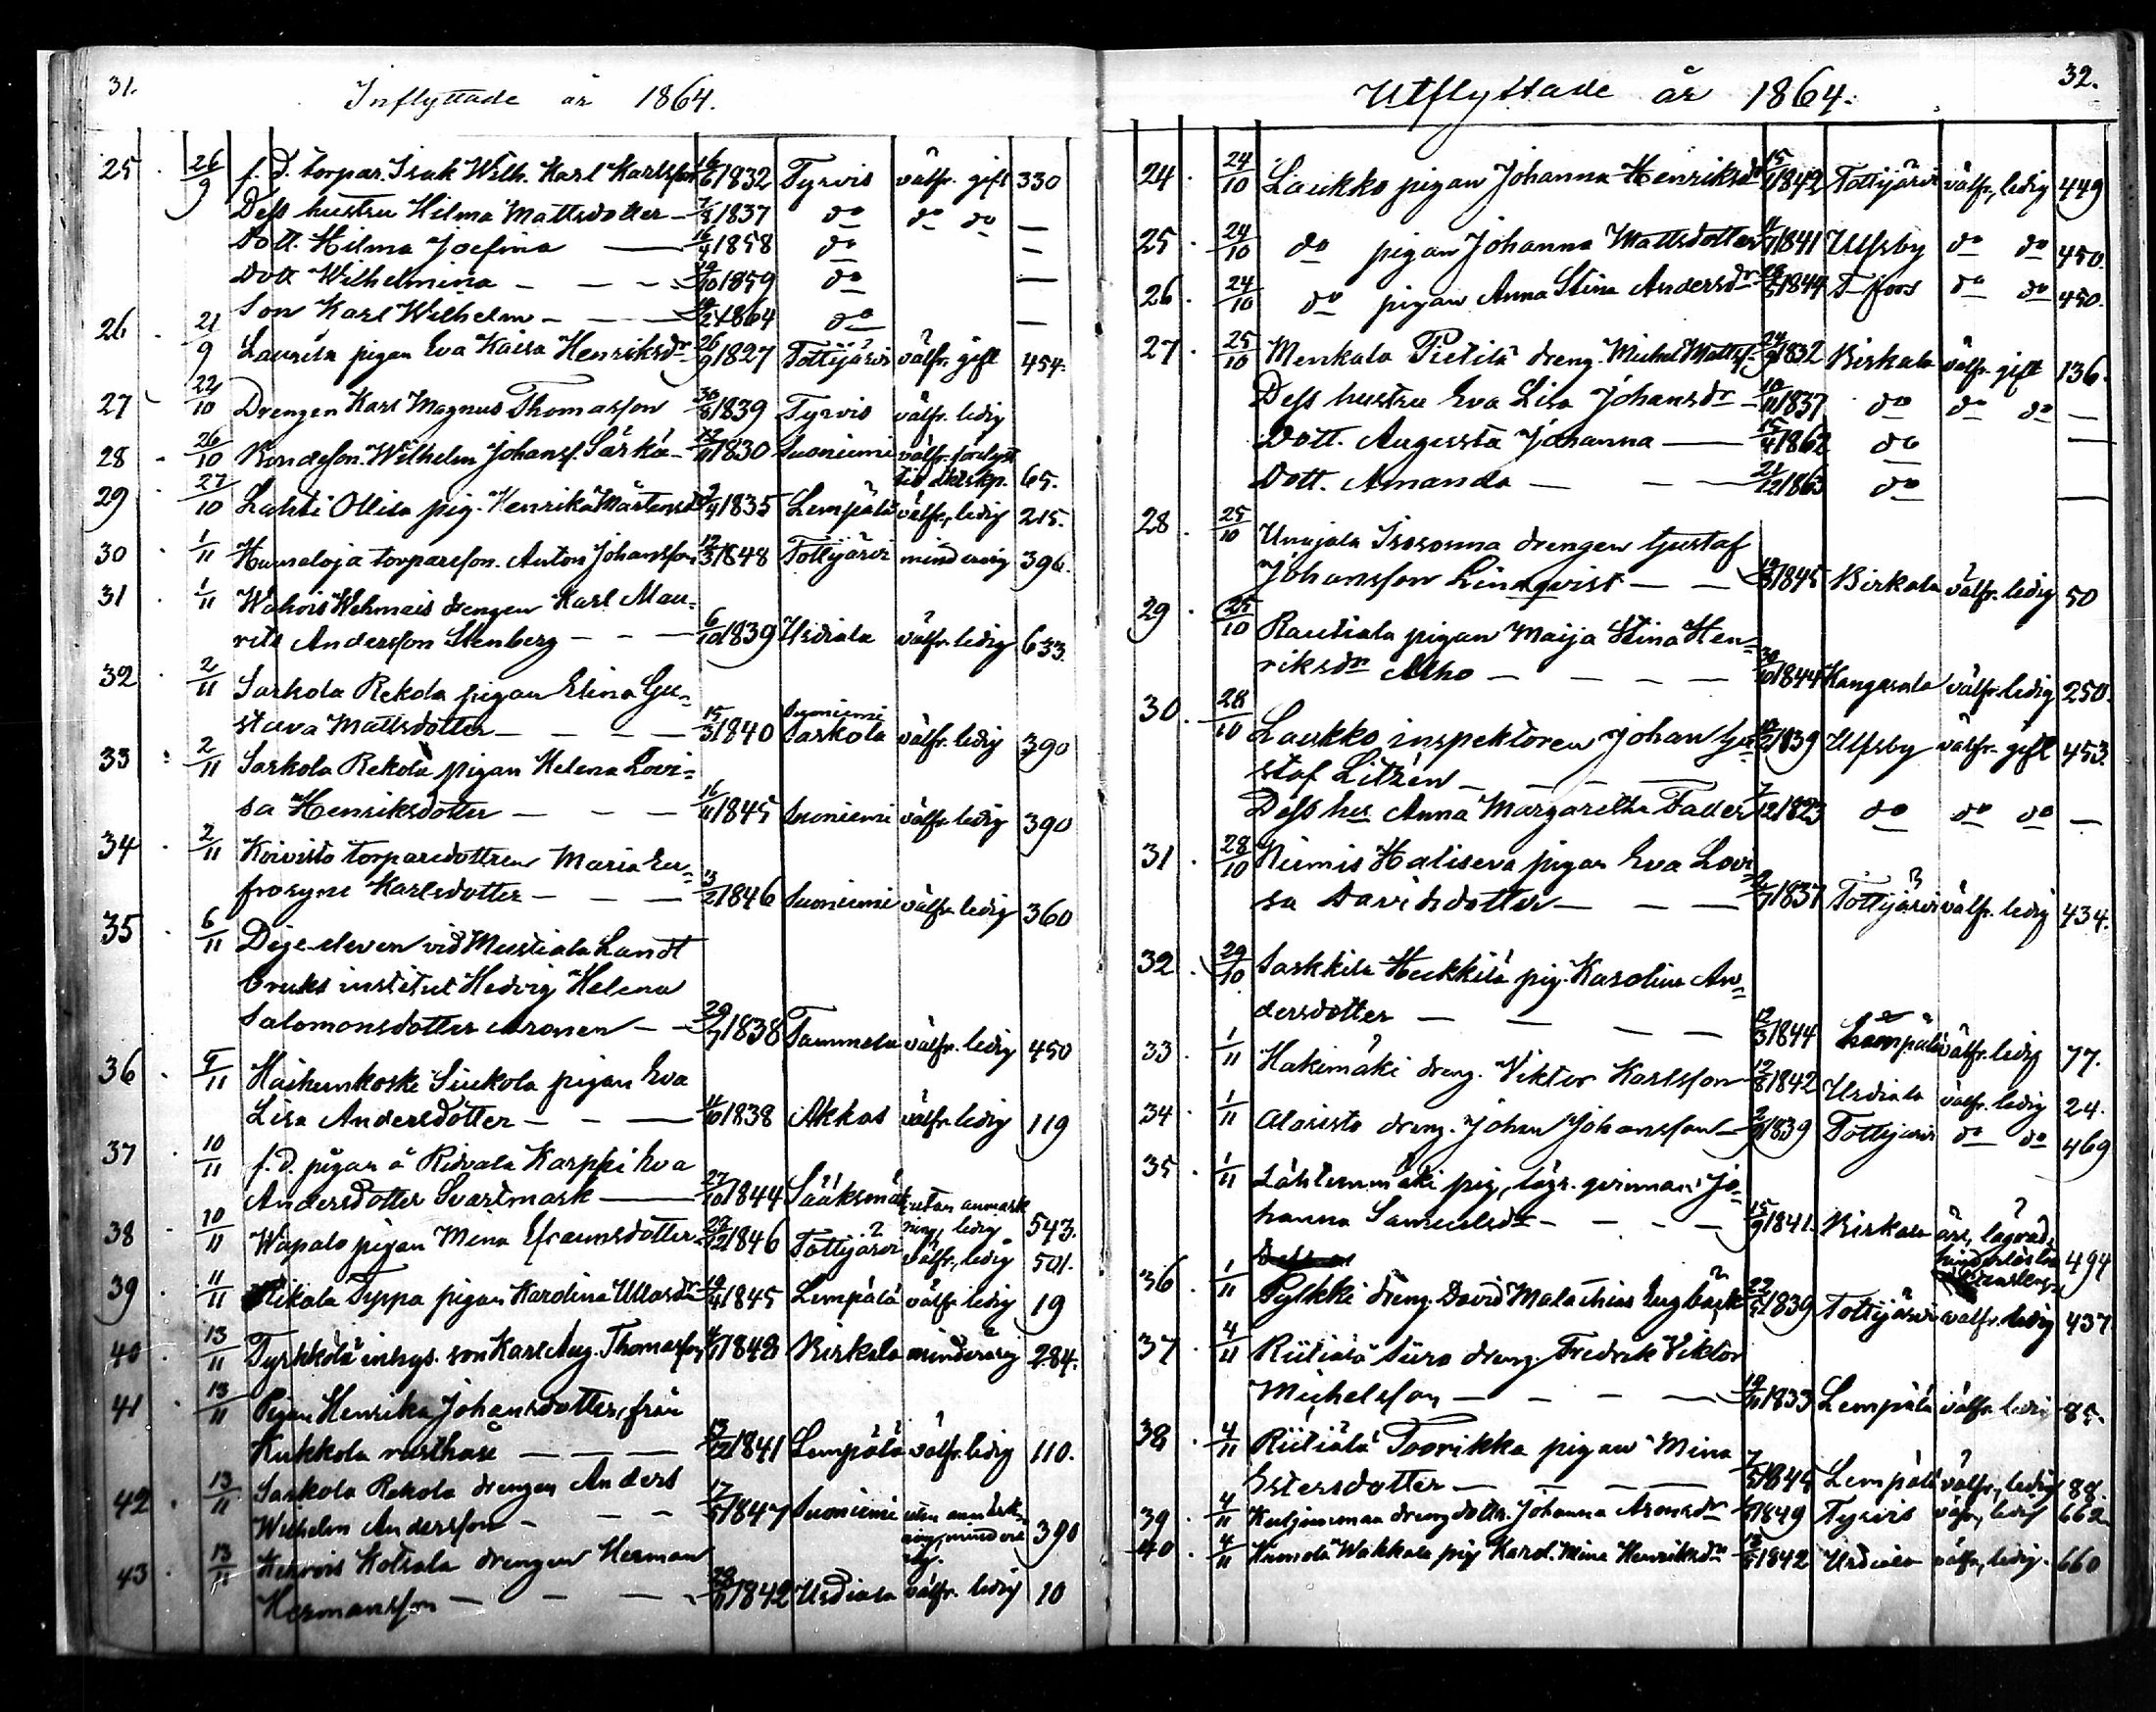 31.
Inflyttade år 1864.
25. 26/9 f. d. torpar. Isak Wilh. Karl Karlsson 16/6 1832 Tyrvis välfr. gift 330
Dess hustru Hilma Mattsdotter – 7/8 1837 do do do —
Dott. Hilma Josefina — 16/4 1858 do —
Dott Wilhelmina – – – 1859 do —
Son Karl Wilhelm – – – 1864 do —
26 21/9 Laurila pigan Eva Kaisa Henriksdr 26/9 1827 Tottijärvi välfr. gift 454.
27 22/10 Drengen Karl Magnus Thomasson 30/8 1839 Tyrvis välfr. ledig
28 26/10 Bondeson. Wilhelm Johans. Särkä – 1830 Suoniemi välfr.
65.
29 27/10 Lahti Ollila pig. Henrika Mårtensdr 1835 Lempälä välfr., ledig 215.
30 1/11 torpareson. Anton Johansson 12/3 1848 Tottijärvi minderårig 396.
31 1/11 Wahois Wehmais drengen Karl Mau-
ritz Andersson Stenberg – – – 6/10 1839 Urdiala välfr. ledig 633.
32 2/11 Sarkola Rekola pigan Elina Gu-
stava Mattsdotter – – – 15/3 1840 Suoniemi Sarkola välfr. ledig 390
33 2/11 Sarkola Rekola pigan Helena Lovi-
sa Henriksdotter – – – 16/11 1845 Suoniemi välfr. ledig 390
34 2/11 Koivisto torparedottren Maria Eu-
frosyne Karlsdotter – – – 13/2 1846 Suoniemi välfr. ledig 360
35 6/11 Deje-eleven vid Mustiala Landt
bruks institut Hedvig Helena
Salomonsdotter Aronen – – 29/7 1838 Tammela välfr. ledig 450
36 9/11 Haihunkoski Siukola pigan Eva
Lisa Andersdotter – – – 11/10 1838 Akkas välfr. ledig 119
37 10/11 f. d. pigan å Ridvala Karppi Eva
Andersdotter Svartmark — 27/10 1844 Sääksmäki utan anmärk
ning, ledig 543.
38 10/11 Wapalo pigan Mina Efraimsdotter 1846 Tottijärvi välfr., ledig 501.
39 11/11 Nikala Typpa pigan Karolina 19/4 1845 Lempälä välfr. ledig 19
40 13/11 Tyrkkölä inhys. son Karl Aug. Thomasson 1848 Birkala minderårig 284.
41 13/11 Pigan Henrika Johansdotter, från
Kukkola rusthåll — — — 1841 Lempälä välfr. ledig 110.
42 13/11 Sarkola Rekola drengen Anders
Wilhelm Andersson – – – 17/5 1847 Suoniemi utan anmärk-
ning, minderå
rig. 390
43 13/11 Kehrois Kotsala drengen Herman
Hermansson – – – 1842 Urdiala välfr. ledig 10
Utflyttade år 1864.
32.
24. 24/10 Laukko pigan Johanna Henriksdr 15/11 1842 Tottijärvi välfr., ledig 449
25. 24/10 do pigan Johanna Mattsdotter 1841 Ulfsby do do 450.
26. 24/10 do pigan Anna Stina Andersdr 1844 T-fors do do 450.
27. 25/10 Menkala Pietilä dreng. Michel Mattss. 24/9 1832 Birkala välfr. gift 136.
Dess hustru Eva Lisa Johansdr – 10/11 1837 do do do —
Dott. Augusta Johanna — 15/4 1862 do —
Dott. Amanda — — — 21/12 1863 do —
28. 25/10 Unajala Isosonna drengen Gustaf
Johansson Lindqvist — — 1845 Birkala välfr. ledig 50
29. 25/10 Rautiala pigan Maija Stina Hen-
riksdr Alho – – – – 30/10 1844 Kangasala välfr. ledig 250.
30. 28/10 Laukko inspektoren Johan Gu-
staf Litzén – – – – 1839 Ulfsby välfr. gift 453.
Dess hu Anna Margaretha Fader 7/12 1823 do do do —
31. 28/10 Niemis Haliseva pigan Eva Lovi
sa Davidsdotter — — — 1837 Tottijärvi välfr. ledig 434.
32. 29/10 Sarkkila Heikkilä pig. Karolina An-
dersdotter – – – – 12/3 1844 Lempälä välfr. ledig 77.
33. 1/11 Hakimäki dreng. Viktor Karlsson 12/8 1842 Urdiala välfr. ledig 24.
34. 1/11 Alasisto dreng. Johan Johansson – 1839 Tottijärvi do do 469
35. 1/11 Lähteenmäki pig, lägr. qvinnan Jo-
hanna Samuelsdr – – – – 15/9 1841. Birkala
494
36. 1/11 Pylkki dreng. David Malachias Engbäck 22/5 1839 Tottijärvi välfr. ledig 437
37. 4/11 Riitialä Siiro dreng. Fredrik Viktor
Michelsson – – – – 19/11 1833 Lempälä välfr. ledig 85.
38. 4/11 Riitiälä Toorikka pigan Mina
Estersdotter – – – – 7/5 1845 Lempälä välfr., ledig 88.
39. 4/11 Kuljunman drengdottr. Johanna Aronsdr 1849 Tyrvis välfr., ledig 662.
40. 4/11 Wakkala pig Karol. Mina Henriksdr 1842 Urdiala välfr., ledig. 660